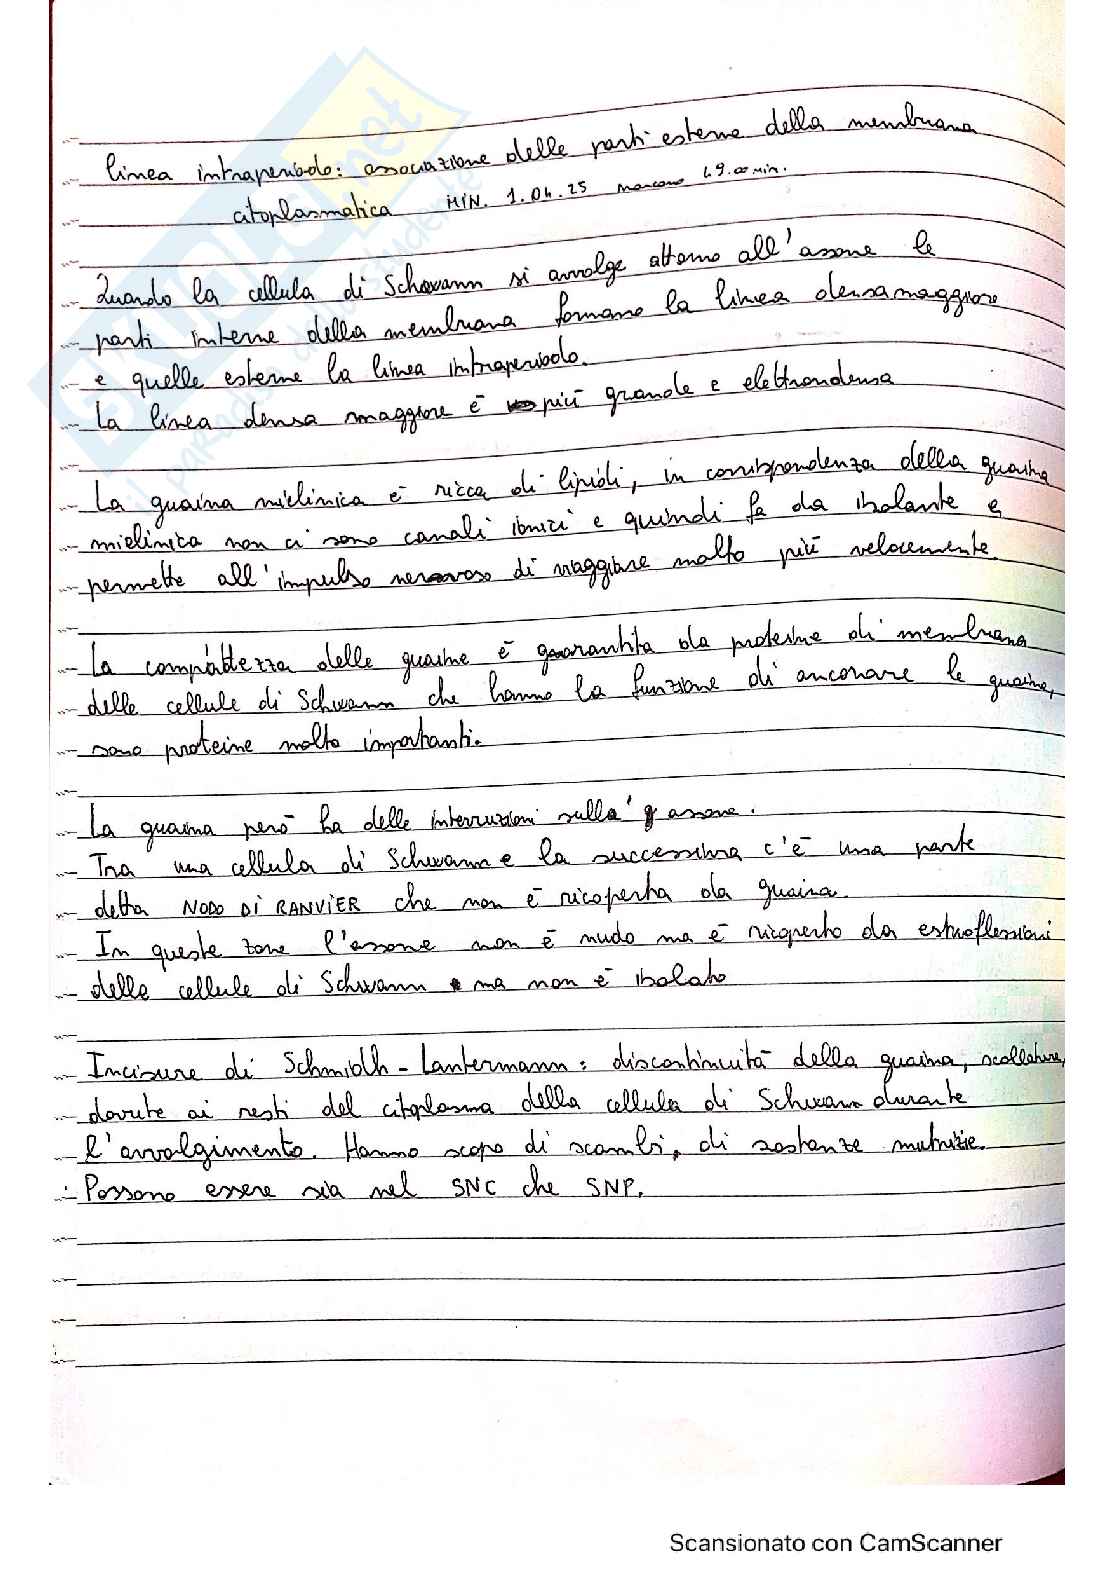 linea intraperiodo: associazione delle parti esterne della membrana
citoplasmatica MIN. 1.04.25 mancano 49.00 min.
Quando la cellula di Schwann si avvolge attorno all'assone le
parti interne della membrana formano la linea densa maggiore
e quelle esterne la linea intraperiodo.
La linea densa maggiore è più grande e elettrondensa
La guaina mielinica è ricca di lipidi, in corrispondenza della guaina
mielinica non ci sono canali ionici e quindi fa da isolante e
permette all'impulso nervoso di viaggiare molto più velocemente.
La compattezza delle guaine è garantita da proteine di membrana
delle cellule di Schwann che hanno la funzione di ancorare le guaine,
sono proteine molto importanti.
La guaina però ha delle interruzioni sulla' assone.
Tra una cellula di Schwann e la successiva c'è una parte
detta NODO DI RANVIER che non è ricoperta da guaina.
In queste zone l'assone non è nudo ma è ricoperto da estroflessioni
delle cellule di Schwann ma non è isolato
Incisure di Schmidth-Lantermann: discontinuità della guaina, scollature,
dovute ai resti del citoplasma della cellula di Schwann durante
l'avvolgimento. Hanno scopo di scambi, di sostanze nutrizie.
Possono essere sia nel SNC che SNP.
SKUOLA.net
il paradiso dello studente
Scansionato con CamScanner